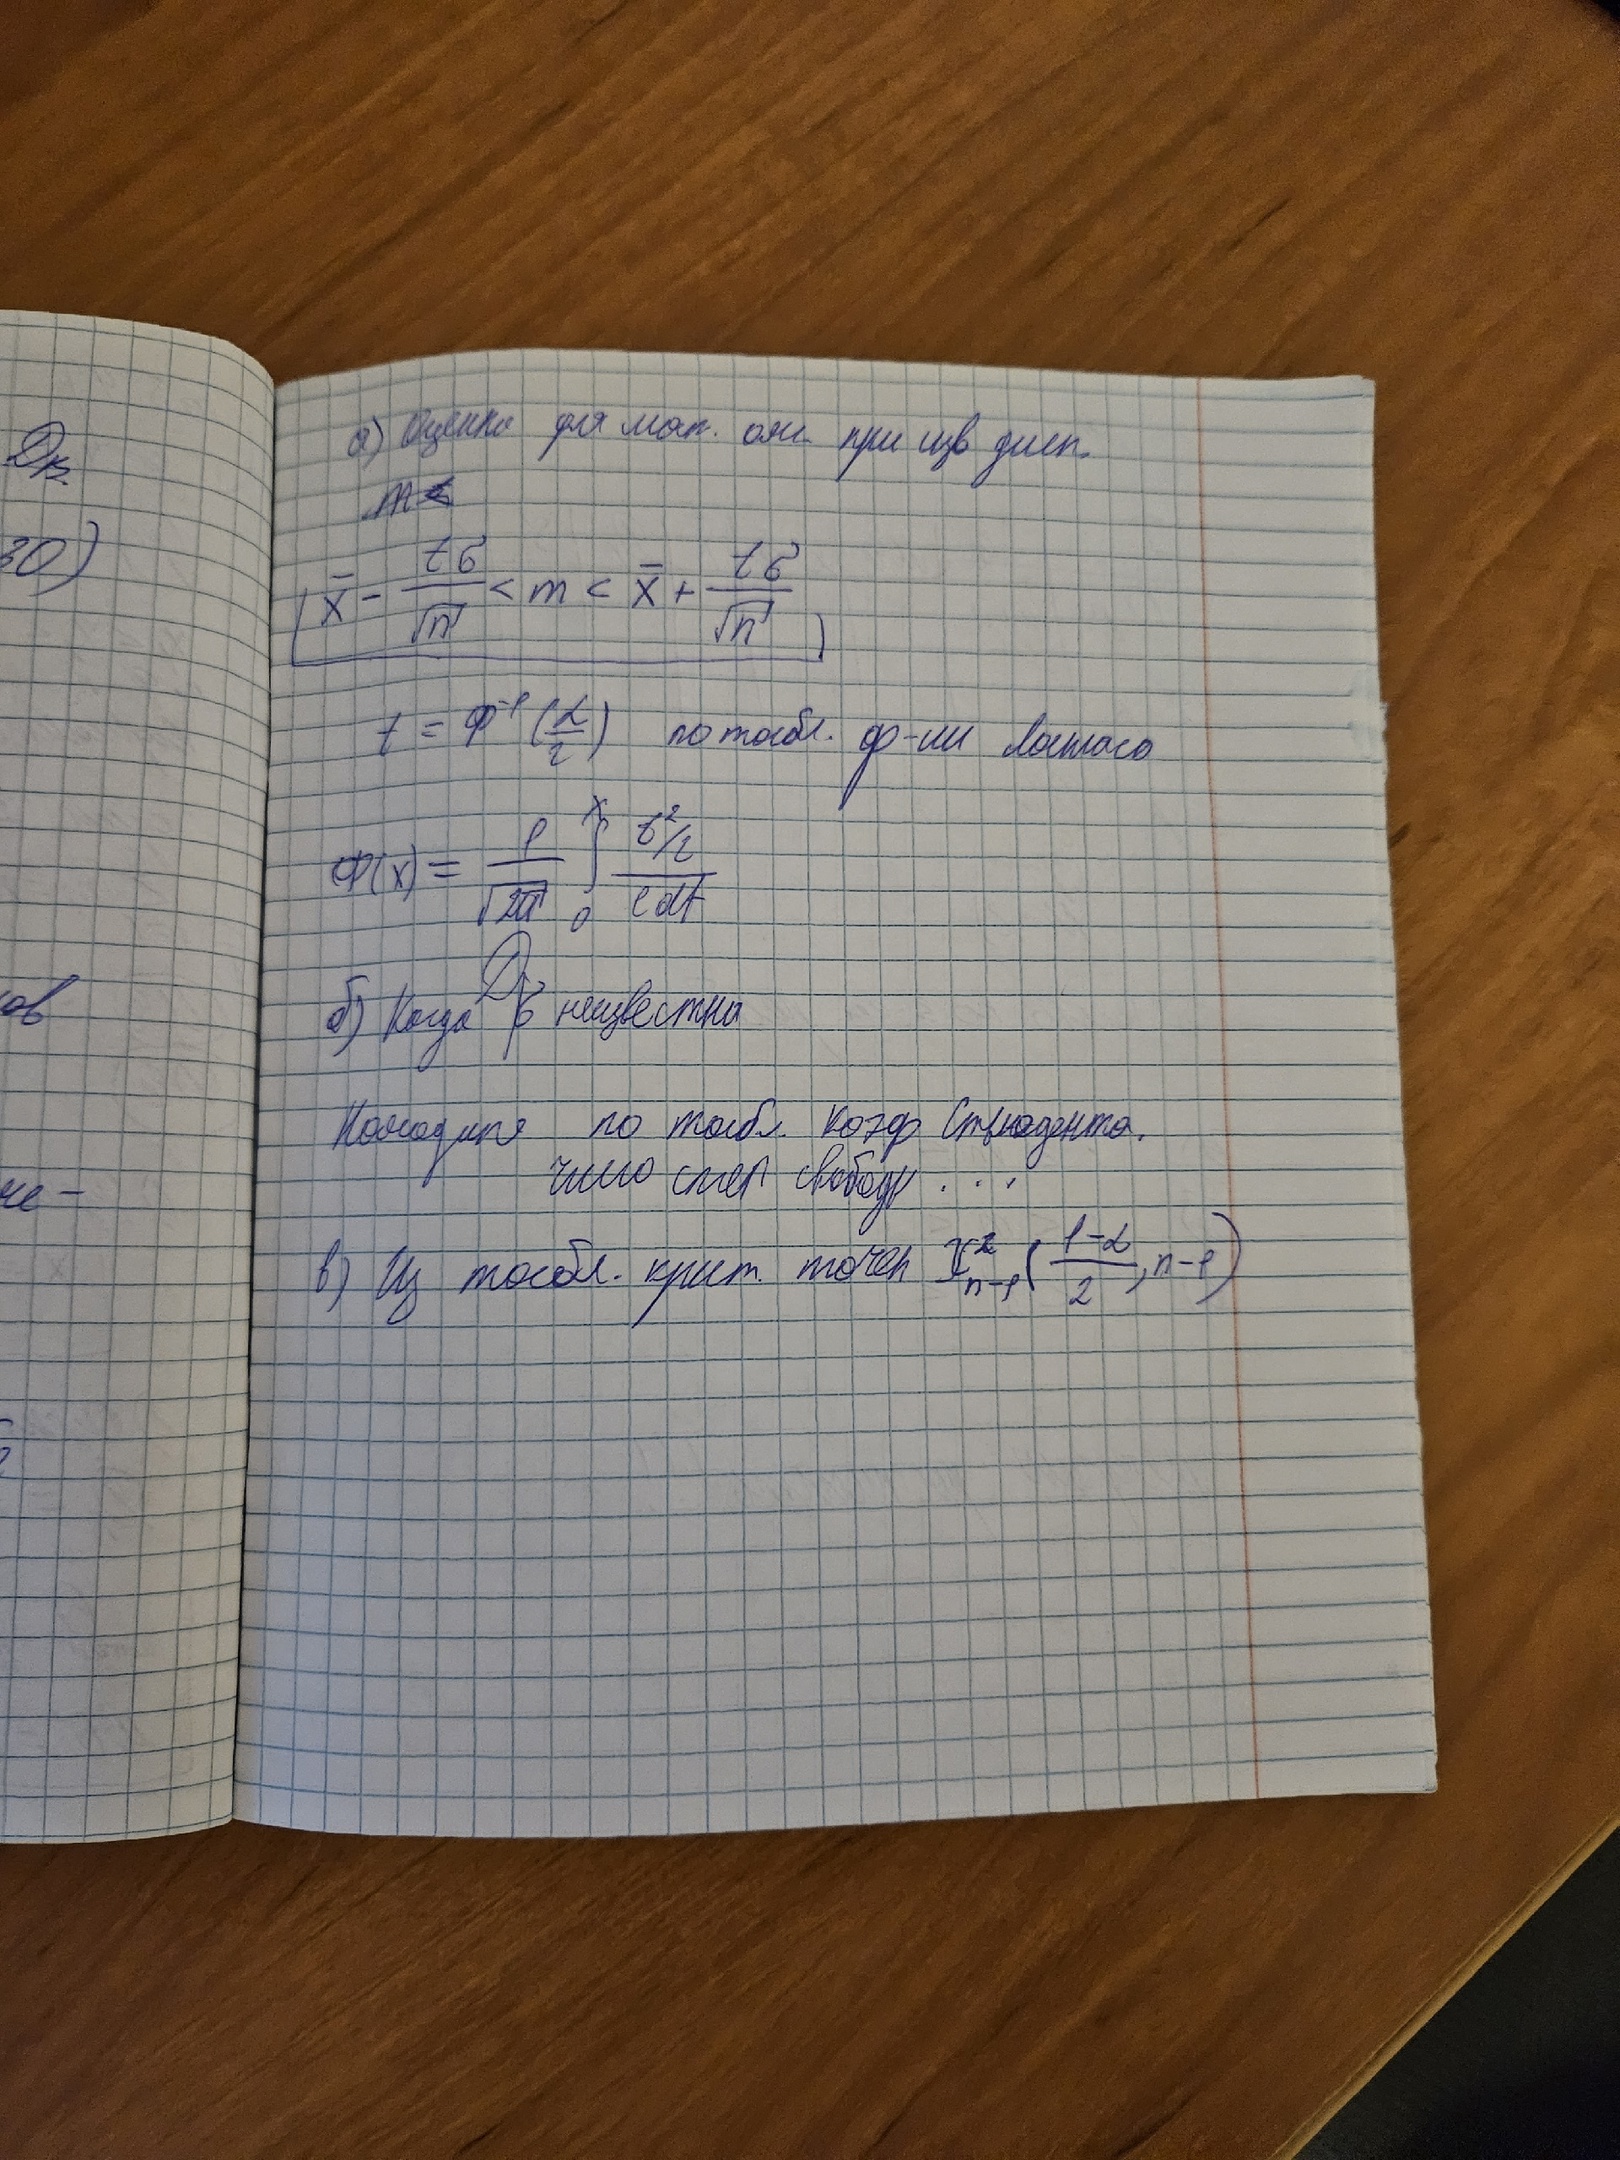 Dв
30)
ов
че-
а) Оценка для мат. ож. при изв дисп.
m<
x̄ - tσ/√n < m < x̄ + tσ/√n
t = Ф⁻¹(α/2) по табл. ф-ии Лапласа
Ф(x) = 1/√2π ∫₀ˣ t²/2 / e dt
б) Когда D неизвестна
Находится по табл. коэф Стьюдента.
число степ свободы ...
в) Из табл. крит. точек χ²ₙ₋₁(1-α/2, n-1)